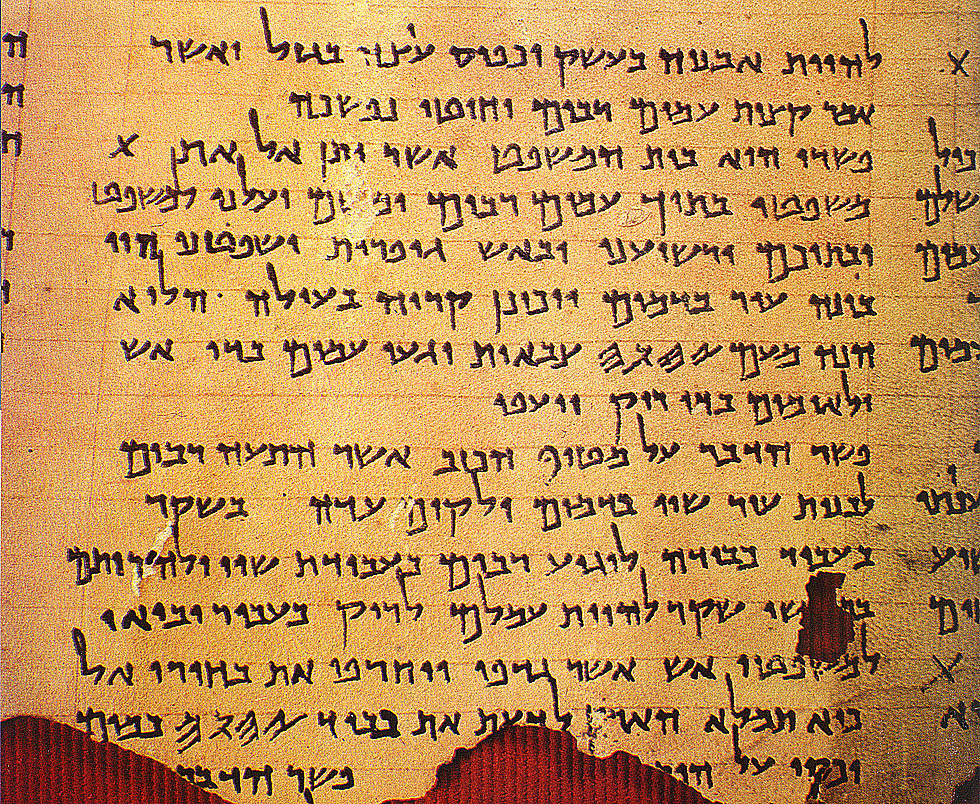 להיות אבניה בעשק וכפיס עיצה בגזל ואשר
אמר קצות עמים רבים וחוטי נפשכה
פשרו הוא בית המשפט אשר יתן אל את X
משפטו בתוך עמים רבים ומשם יעלנו למשפט
ובתוכם ירשיענו ובאש גופרית ישפטנו הוי
בונה עיר בדמים ויכונן קריה בעולה הלוא
הנה מעם 𐤉𐤄𐤅𐤄 צבאות יגעו עמים בדי אש
ולאומים בדי ריק ייעפו
פשר הדבר על מטיף הכזב אשר התעה רבים
לבנות עיר שוו בדמים ולקים עדה בשקר
בעבור כבודה לוגיע רבים בעבודת שוו ולהרותם
שקר להיות עמלם לריק בעבור יבואו
למשפטי אש אשר גדפו ויחרפו את בחירי אל
כיא תמלא הארץ לדעת את כבוד 𐤉𐤄𐤅𐤄 כמים
יכסו על פשר הדבר